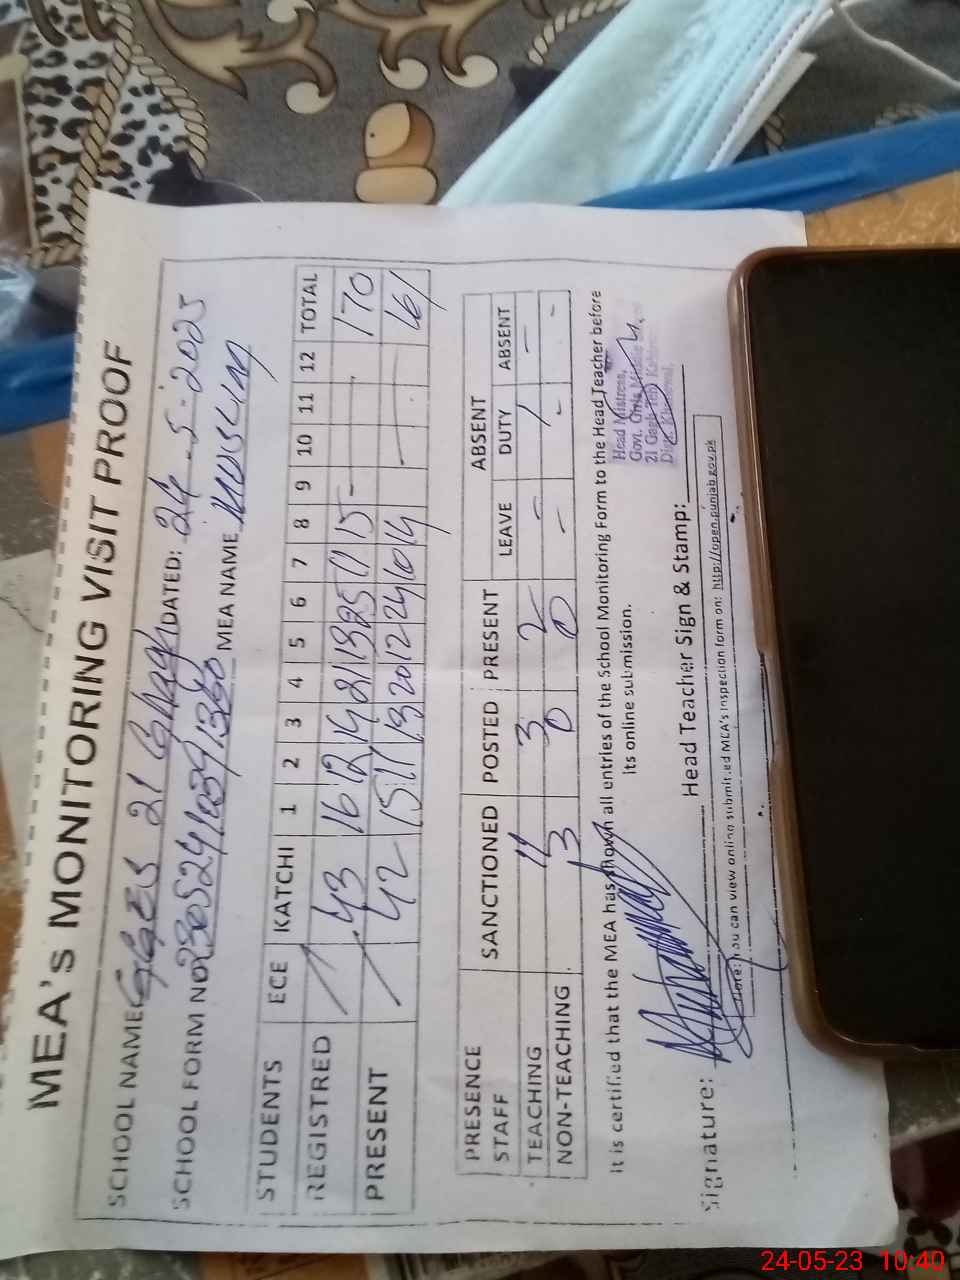 MEA'S MONITORING VISIT PROOF
SCHOOL NAME: GGES 21 Ghagh DATED: 24-5-2023
SCHOOL FORM NO MEA NAME MUSLIM
STUDENTS ECE KATCHI 1 2 3 4 5 6 7 8 9 10 11 12 TOTAL
REGISTRED 43 16 12 14 21 13 25 11 15 - 170
PRESENT 42 15 11 13 20 12 24 10 14 161
PRESENCE STAFF SANCTIONED POSTED PRESENT ABSENT
LEAVE DUTY ABSENT
TEACHING 4 3 2 - - -
NON-TEACHING 3 0 0 - - -
It is certified that the MEA has shown all entries of the School Monitoring Form to the Head Teacher before
its online submission.
Head Mistress,
Govt. Girls
21
Signature: Head Teacher Sign & Stamp:
Note: You can view online submitted MEA's Inspection form on: http://open.punjab.gov.pk
24-05-23 10:40